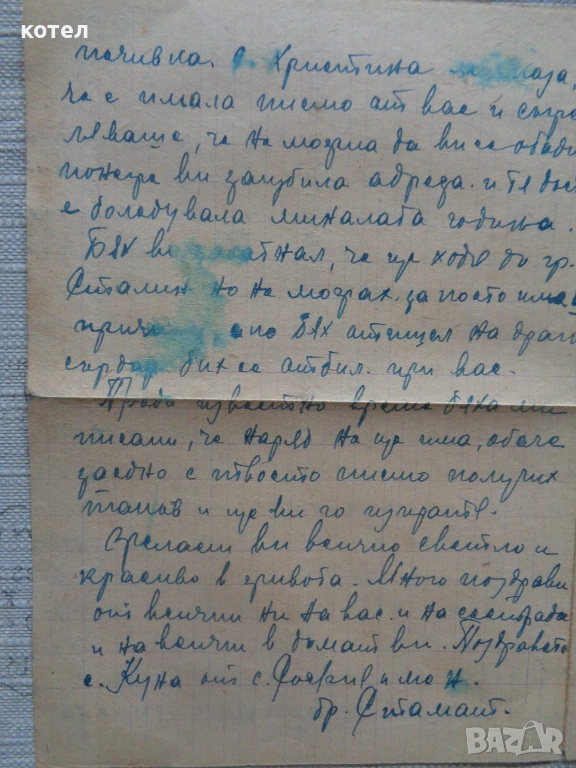 котел
почивка. Христина каза,
че е имала писмо от вас и съжа
лъваше, че не могла да ви се обади
понеже ви загубила адреса. и тя
е боледувала миналата година.
Бях ви че ще ходя до гр.
Сталин но не можах. за което има
ако бях отишел на драго
сърдце бих се отбил при вас.
Преди известно време бяха ми
писали, че наряд не ще има, обаче
заедно с твоето писмо получих
такъв и ще ви го изпратя.
Желаем ви всичко светло и
красиво в живота. Много поздрави
от всички ни на вас. и на
и на всички в дома ви. Поздравете
с. Куна от с.
бр. Стамат.
BAZAR